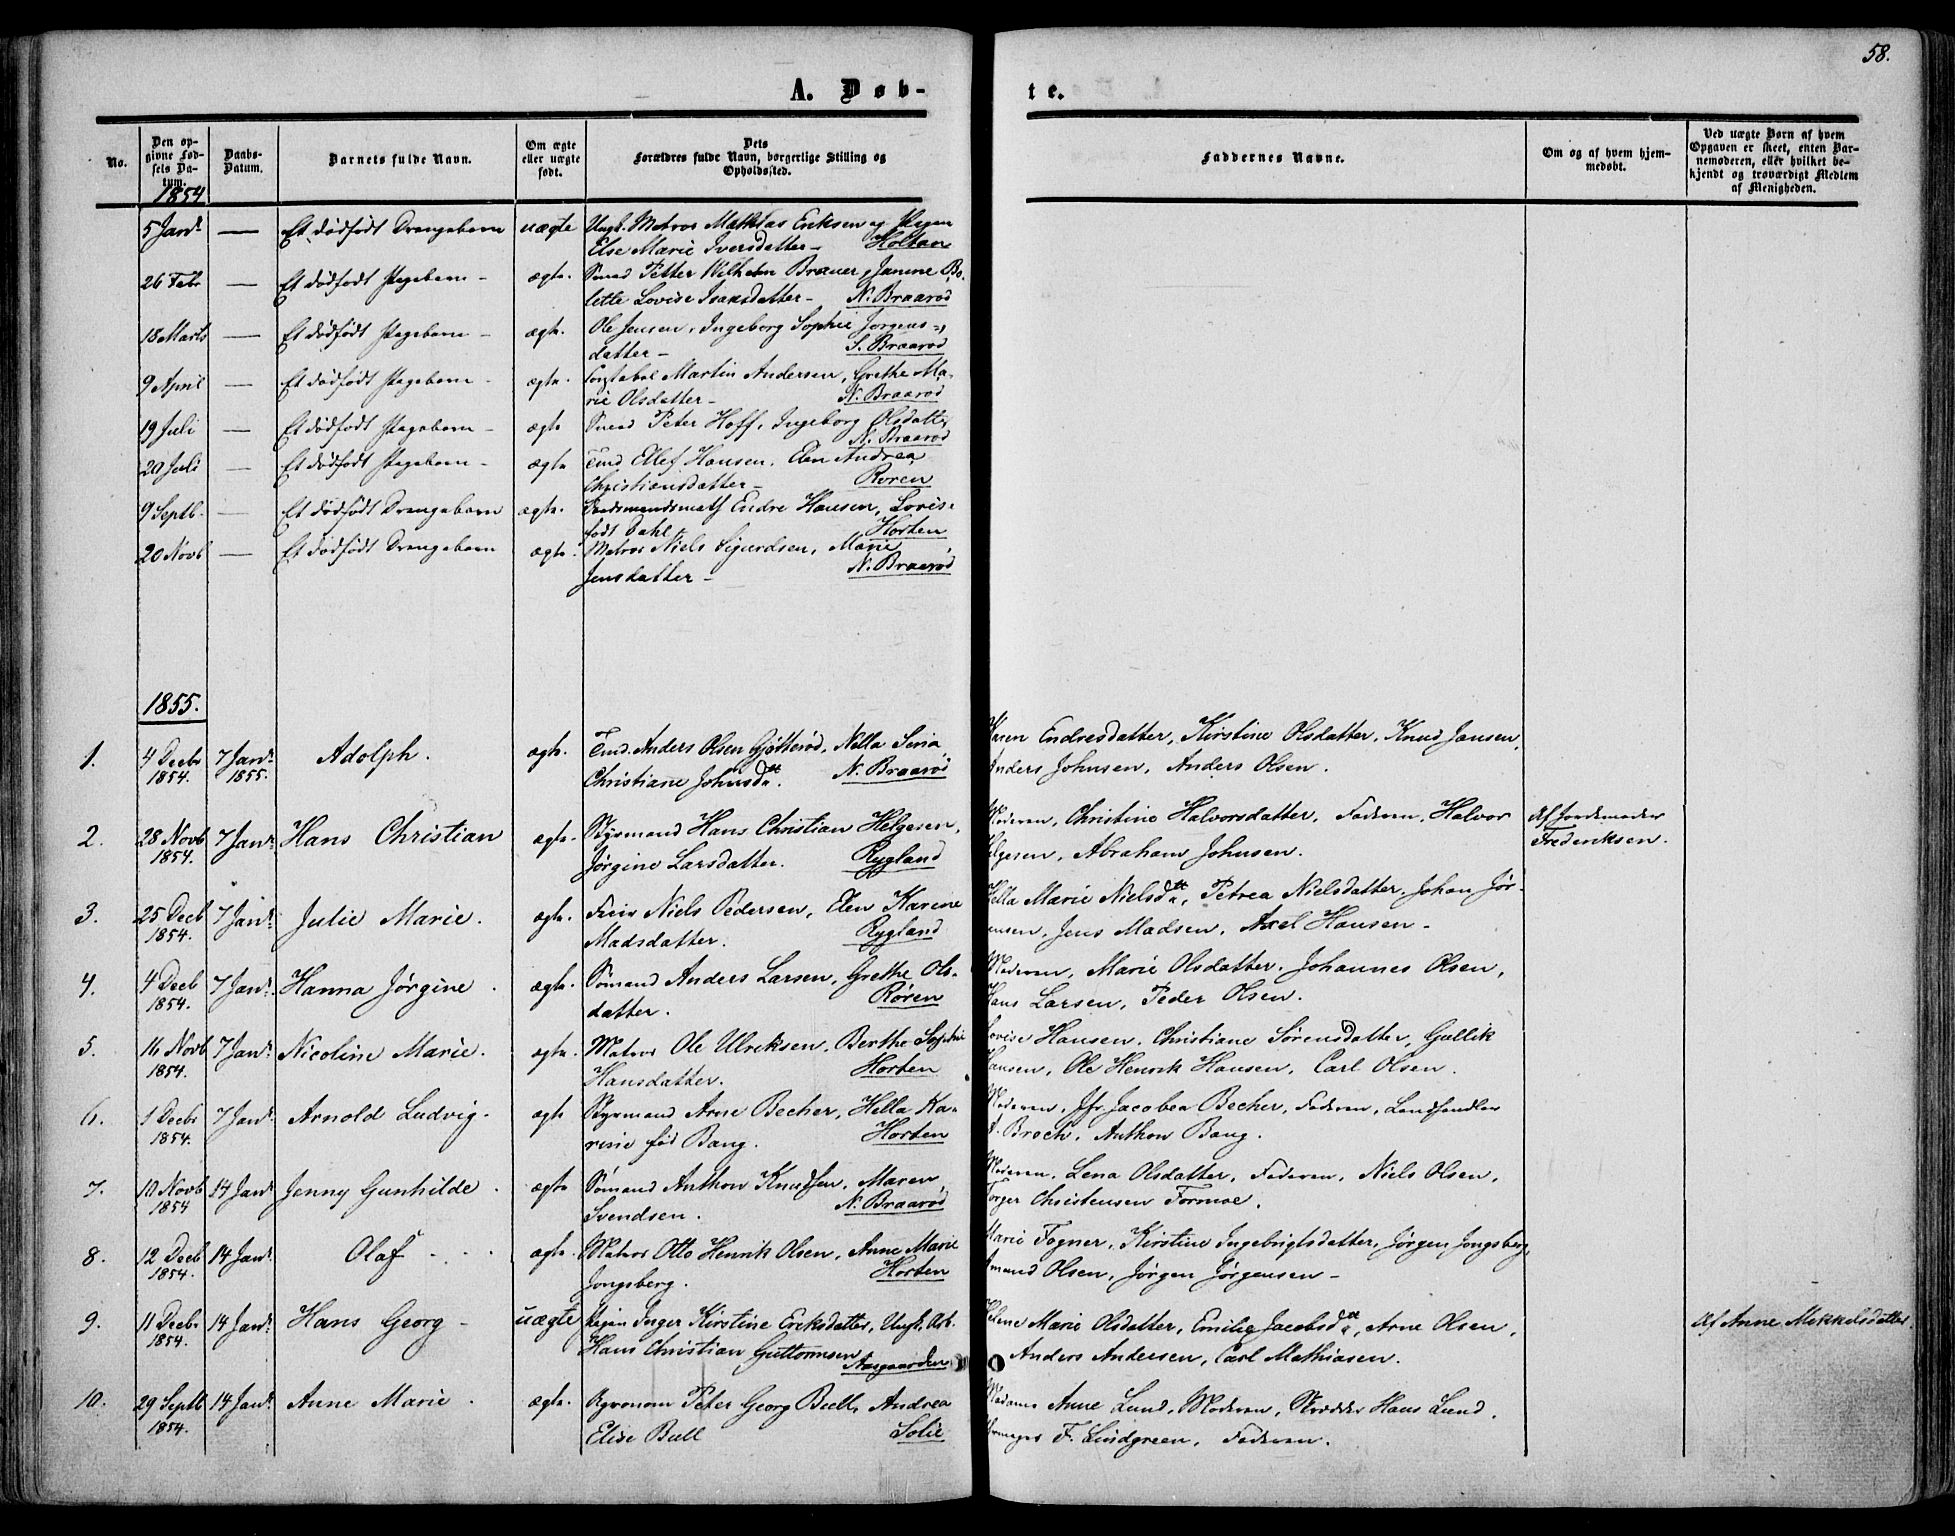 58.
A. Døb-
te.
No.
Den op-
givne Fød-
sels Da-
tum.
Daabs-
Datum.
Barnets fulde Navn.
Om ægte
eller uægte
født.
Dets
Forældres fulde Navn, borgerlige Stilling og
Opholdssted.
Faddernes Navne.
Om og af hvem hjem-
medøbt.
Ved uægte Børn af hvem
Opgaven er skeet, enten Bar-
nemoderen, eller hvilket be-
kjendt og troværdigt Medlem
af Menigheden.
1854
5 Janr. — Et dødfødt Drengebarn uægte Ungk. Matros Mathias Eriksen og Pigen
Else Marie Iversdatter – Holtan
26 Febr — Et dødfødt Pigebarn – ægte. Smed Petter Wilhelm Brauer, Janine Bo-
lette Lovise Isaksdatter – N. Braarød
18 Marts — Et dødfødt Pigebarn – ægte. Ole Jensen, Ingeborg Sophie Jørgens-
datter – S. Braarød
9 April — Et dødfødt Pigebarn – ægte. Martin Andersen, Grethe Ma-
rie Olsdatter – N. Braarød
19 Juli — Et dødfødt Pigebarn – ægte Smed Peter Hoff, Ingeborg Olsdatter
N. Braarød
20 Juli — Et dødfødt Pigebarn – ægte Tmd Ellef Hansen, Elen Andrea
Christiansdatter – Røren
9 Septb. — Et dødfødt Drengebarn ægte. Endre Hansen, Lovise
født Dahl Horten
20 Novb — Et dødfødt Drengebarn ægte. Matros Niels Sigurdsen, Marie
Jensdatter – N. Braarød
1855.
1. 4 Decbr 7 Janr. Adolph. ægte. Tmd. Anders Olsen Gjøtterød, Nella Seria
1854. 1855. Christiane Johnsdtt. N. Braarød
Maren Endresdatter, Kirstine Olsdatter, Knud Jansen,
Anders Johnsen, Anders Olsen.
2. 28 Novb 7 Janr. Hans Christian ægte. Styrmand Hans Christian Helgesen,
1854. Jørgine Larsdatter. Rygland
Moderen, Christine Halvorsdatter, Faderen, Halvor
Helgesen, Abraham Johnsen.
Af Jordemoder
Frederiksen.
3. 25 Decb 7 Janr. Julie Marie. ægte. Niels Pedersen, Elen Karine
1854. Madsdatter. Rygland
Hella Marie Nielsdtt, Petrea Nielsdatter, Johan Jør-
gensen, Jens Madsen, Axel Hansen –
4. 4 Decb 7 Janr. Hanna Jørgine. ægte. Sømand Anders Larsen, Grethe Ols-
1854. datter. Røren
Moderen, Marie Olsdatter, Johannes Olsen,
Hans Larsen, Peder Olsen.
5. 16 Novb 7 Janr. Nicoline Marie. ægte. Matros Ole Ulriksen, Berthe Sophie
1854. Hansdatter. Horten
Lovise Hansen, Christiane Sørensdatter, Gullik
Hansen, Ole Henrik Hansen, Carl Olsen.
6. 1 Decbr 7 Janr. Arnold Ludvig. ægte Styrmand Arne Becher, Hella Ka-
1854. rine fød Bang. Horten
Moderen, Jfr Jacobea Becher, Faderen, Landhandler
Broch, Anthon Bang.
7. 10 Novb 14 Janr. Jenny Gunhilde. ægte Sømand Anthon Knudsen, Maren
1854 Svendsen. N. Braarød
Moderen, Lena Olsdatter, Faderen, Niels Olsen,
Torger Christensen Formoe.
8. 12 Decb 14 Janr. Olaf. ægte. Matros Otto Henrik Olsen, Anne Marie
1854. Jongsberg. Horten
Marie Fogner, Kirstine Ingebrigtsdatter, Jørgen Jongsberg,
Amund Olsen, Jørgen Jørgensen –
9. 11 Decbr 14 Janr. Hans Georg – uægte Pigen Inger Kirstine Eriksdatter, Ungk. Arb.
1854. Hans Christian Guttormsen Aasgaarden
Helene Marie Olsdatter, Emilie Jacobsdtt, Arne Olsen,
Anders Andersen, Carl Mathiasen.
Af Anne Mikkelsdatter.
10. 29 Septb 14 Janr. Anne Marie. ægte. Peter Georg Bull, Andrea
1854. Elise Bull Solie
Madame Anne Lund, Moderen, Skrædder Hans Lund,
F. Lindgreen, Faderen.